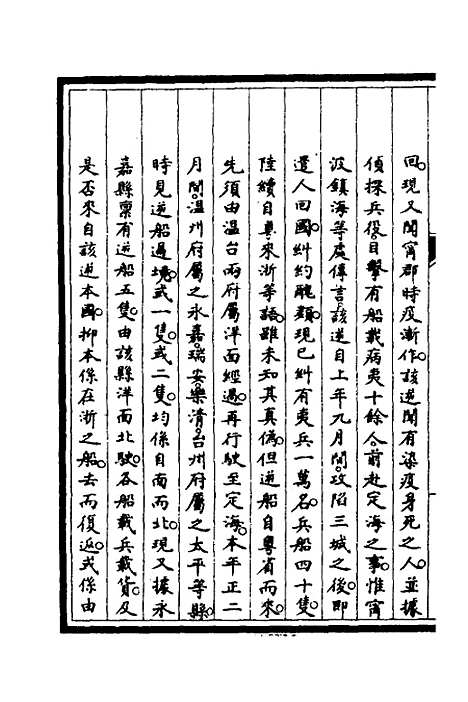 回。現又聞甯郡時疫漸作。該逆間有染疫身死之人。並據
偵探兵役。目擊有船載病夷十餘人。前赴定海之事。惟甯
波鎮海等處傳言。該逆自上年九月間。攻陷三城之後。即
遣人回國。糾約醜類。現已糾有夷兵一萬名。兵船四十隻。
陸續自粵來浙等語。雖未知其真偽。但逆船自粵省而來。
先須由温台兩府屬洋面經過。再行駛至定海。本年正二
月間。温州府屬之永嘉。瑞安。樂清。台州府屬之太平等縣。
時見逆船過境。或一隻。或二隻。均係自南而北。現又據永
嘉縣稟有逆船五隻。由該縣洋面北駛。各船載兵載貨。及
是否來自該逆本國。抑本係在浙之船。去而復返。或係由